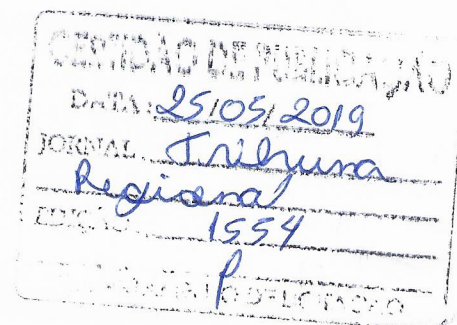 CERTIDÃO DE PUBLICAÇÃO
DATA: 25/05/2019
JORNAL Tribuna
Regional
EDIÇÃO 1554
DE LICITAÇÃO